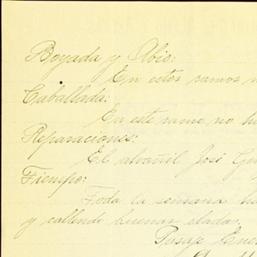 Boyada y Abio:
En estos ramos n
Caballada:
En este ramo no hu
Reparaciones:
El albañil José Gu
Tiempo:
Toda la semana hu
y callendo buenas eladas.
Pasaje